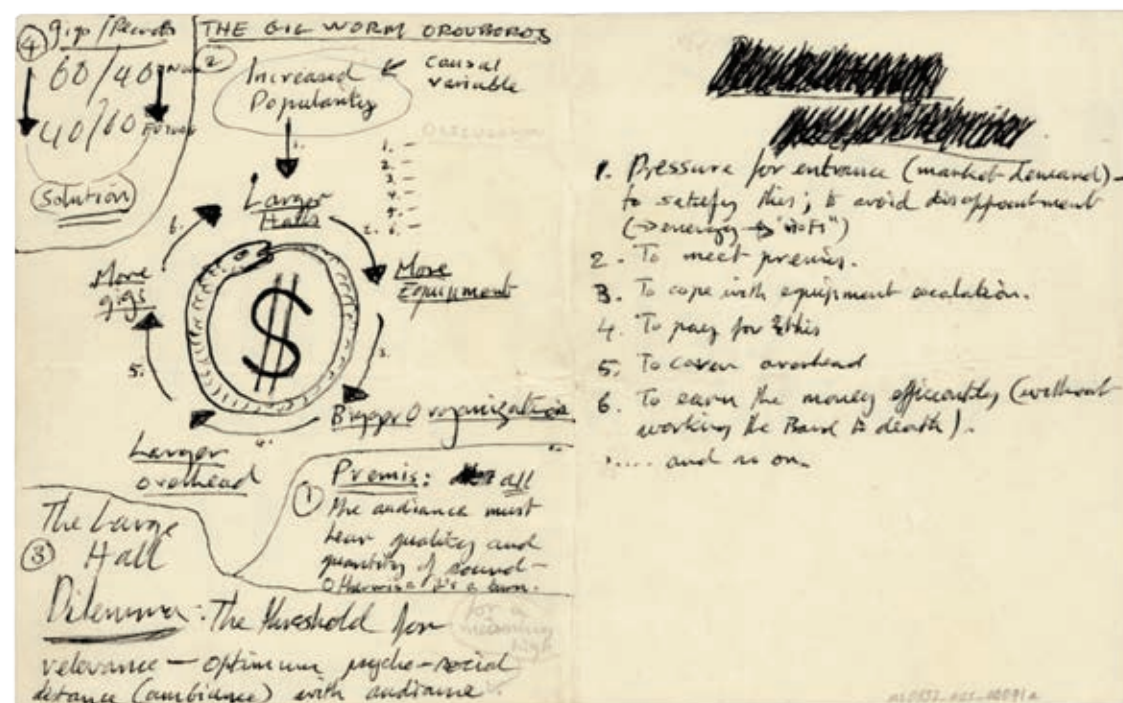 4 Gigs/Records
60/40 NOW
40/60 FUTURE
(Solution)
THE GIG WORM OROUBOROS
2
Increased
Popularity
causal
variable
1.
1. –
2. –
3. –
4. –
5. –
6. –
Larger
Halls
2.
More
Equipment
3.
Bigger Organization
4.
Larger
overhead
5.
More
gigs
6.
$
1 Premis: all
the audiance must
hear quality and
quantity of sound –
Otherwise it's a burn.
3 The Large
Hall
Dilemma: The threshold for
relevance — optimum psycho-social
distance (ambiance) with audiance
for a
meaning
high
1. Pressure for entrance (market demand) –
to satisfy this; to avoid disappointment
(→ energy → "riots")
2. To meet premis.
3. To cope with equipment escalation.
4. To pay for this
5. To cover overhead
6. To earn the money efficently (without
working the Band to death).
..... and so on.